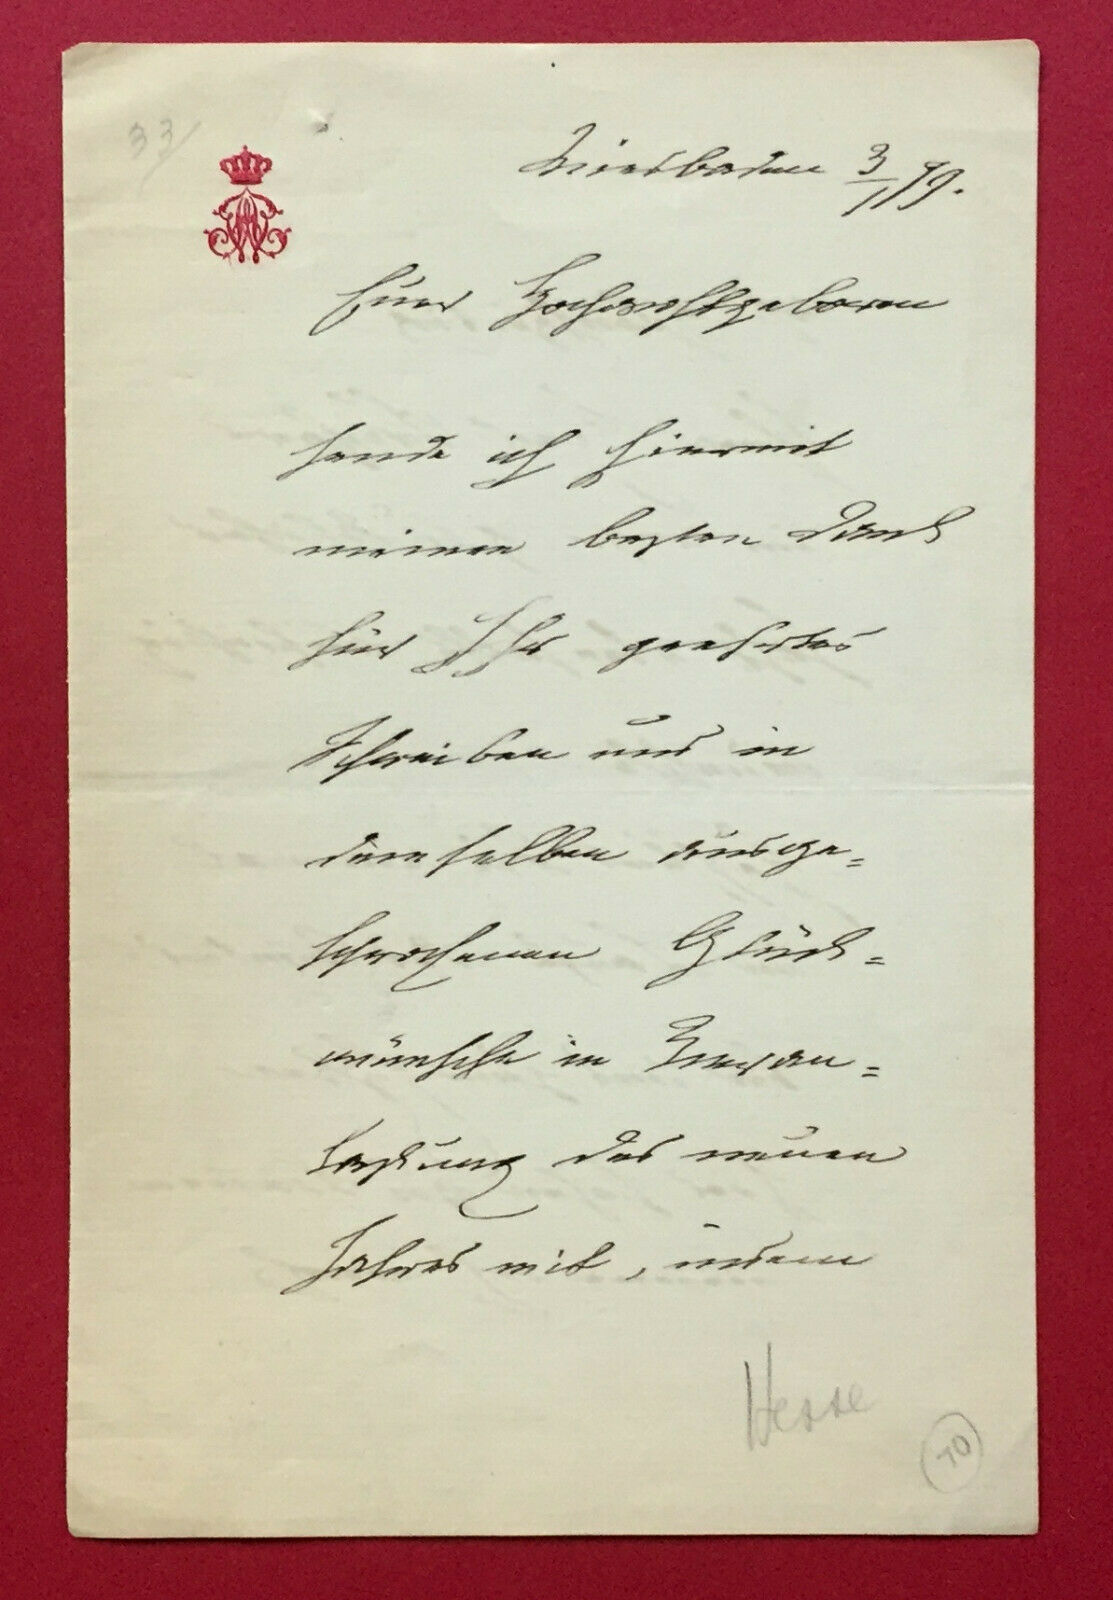 33/
Wiesbaden 3/1 99.
Euer Hochwohlgeboren
sende ich hiermit
meinen besten Dank
für Ihr geehrtes
Schreiben und in
demselben ausge=
sprochenen Glück=
wünsche in Veran=
lassung des neuen
Jahres mit, indem
Hesse
70